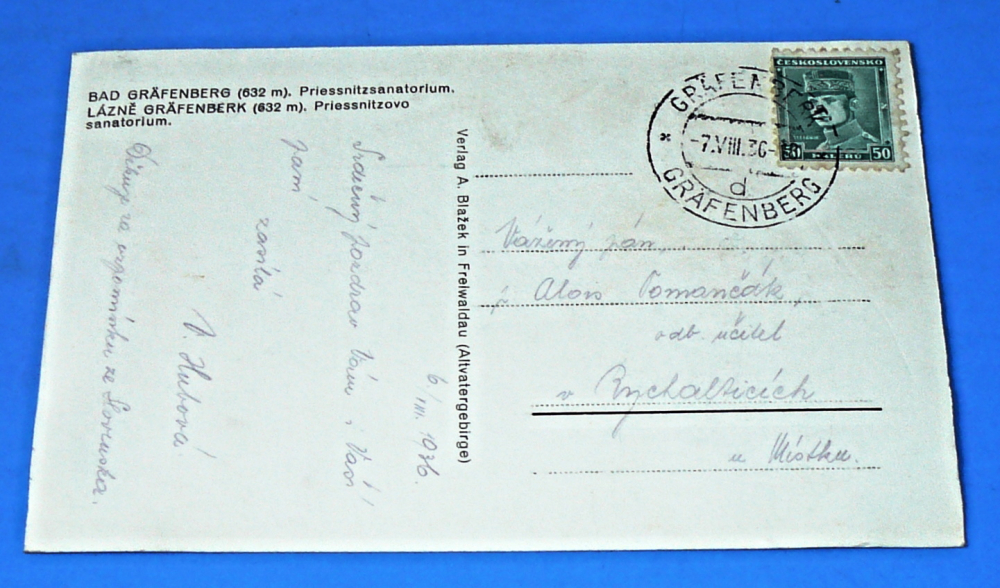 BAD GRÄFENBERG (632 m). Priessnitzsanatorium.
LÁZNĚ GRÄFENBERK (632 m). Priessnitzovo
sanatorium.
Verlag A. Blažek in Freiwaldau (Altvatergebirge)
ČESKOSLOVENSKO
50 HALÉŘŮ 50
GRÄFENBERK
-7.VIII.36-
d
* GRÄFENBERG
6/VIII. 1936.
Srdečný pozdrav Vám i Vaší
paní
zasílá
V. Hubová.
Děkuji za vzpomínku ze Slovenska.
Vážený pán,
Alois Tomančák,
odb. učitel
v Rychalticích
u Místku.